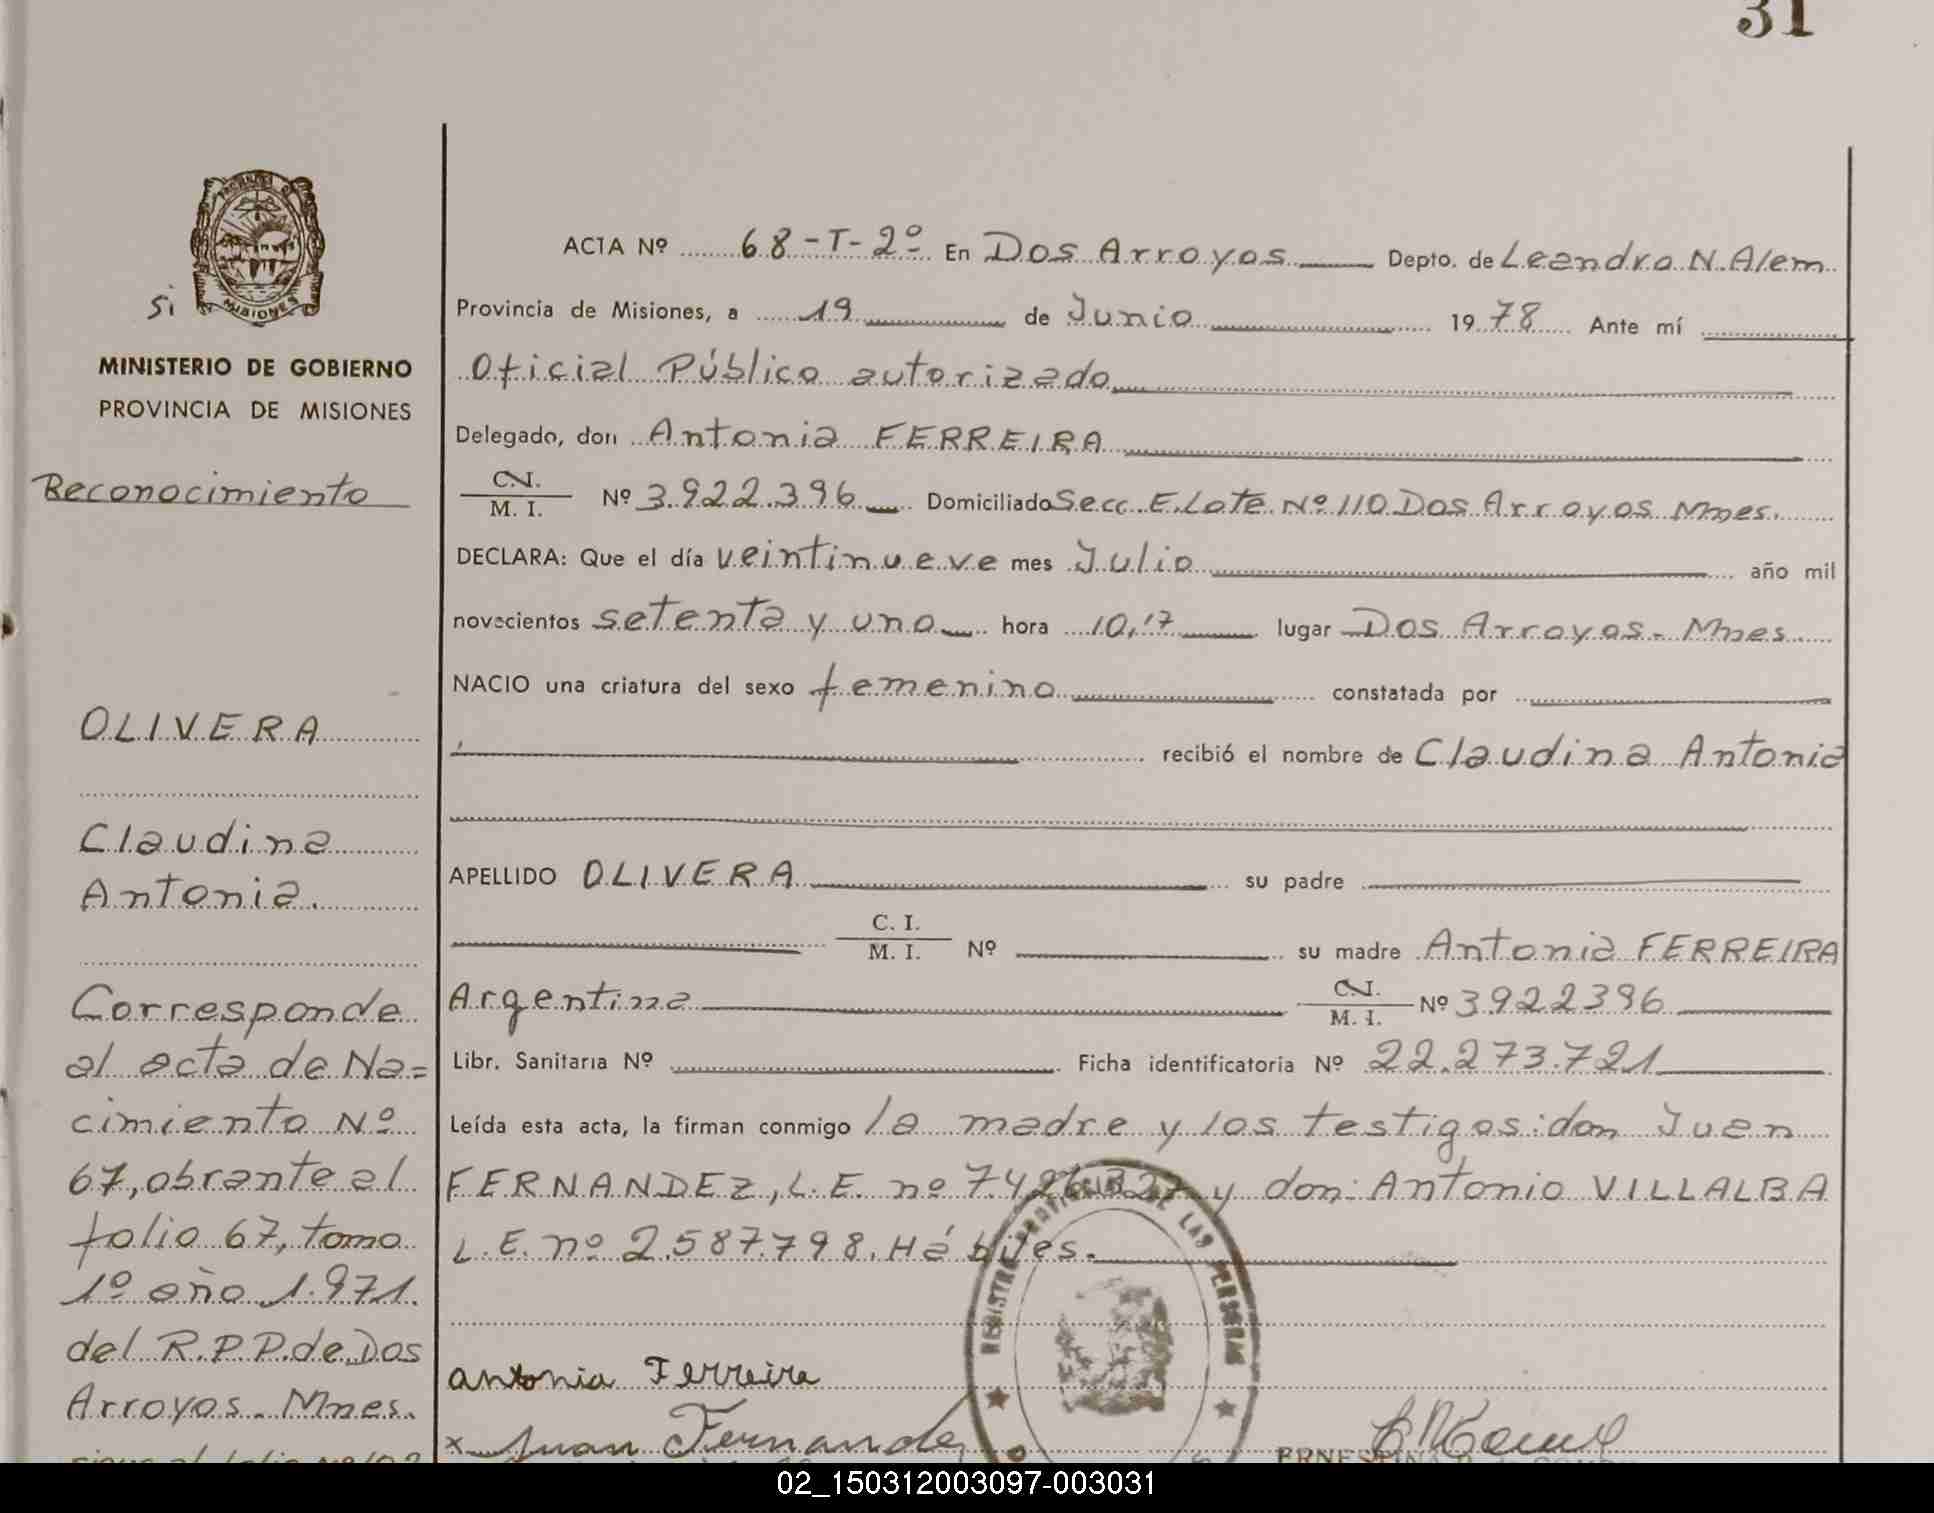 31
ACTA Nº 68-T-2º En Dos Arroyos Depto. de Leandro N. Alem
Provincia de Misiones, a 19 de Junio 1978 Ante mí
Oficial Público autorizado
Delegado, don Antonia FERREIRA
C.I.
M. I. Nº 3.922.396 Domiciliado Secc. E. Lote Nº 110 Dos Arroyos Mnes.
DECLARA: Que el día veintinueve mes Julio año mil
novecientos setenta y uno hora 10,17 lugar Dos Arroyos - Mnes.
NACIO una criatura del sexo femenino constatada por
recibió el nombre de Claudina Antonia
APELLIDO OLIVERA su padre
C. I.
M. I. Nº su madre Antonia FERREIRA
Argentina C.I.
M. I. Nº 3922396
Libr. Sanitaria Nº Ficha identificatoria Nº 22.273.721
Leída esta acta, la firman conmigo la madre y los testigos: don Juan
FERNANDEZ, L. E. nº 7.426.327 y don: Antonio VILLALBA
L. E. nº 2.587.798. Hábiles.
Antonia Ferreira
x Juan Fernandez
REGISTRO PROVINCIAL DE LAS PERSONAS
si
MISIONES
MINISTERIO DE GOBIERNO
PROVINCIA DE MISIONES
Reconocimiento
OLIVERA
Claudina
Antonia.
Corresponde
al acta de Na=
cimiento Nº
67, obrante al
folio 67, tomo
1º año 1.971.
del R.P.P. de Dos
Arroyos - Mnes.
02_150312003097-003031